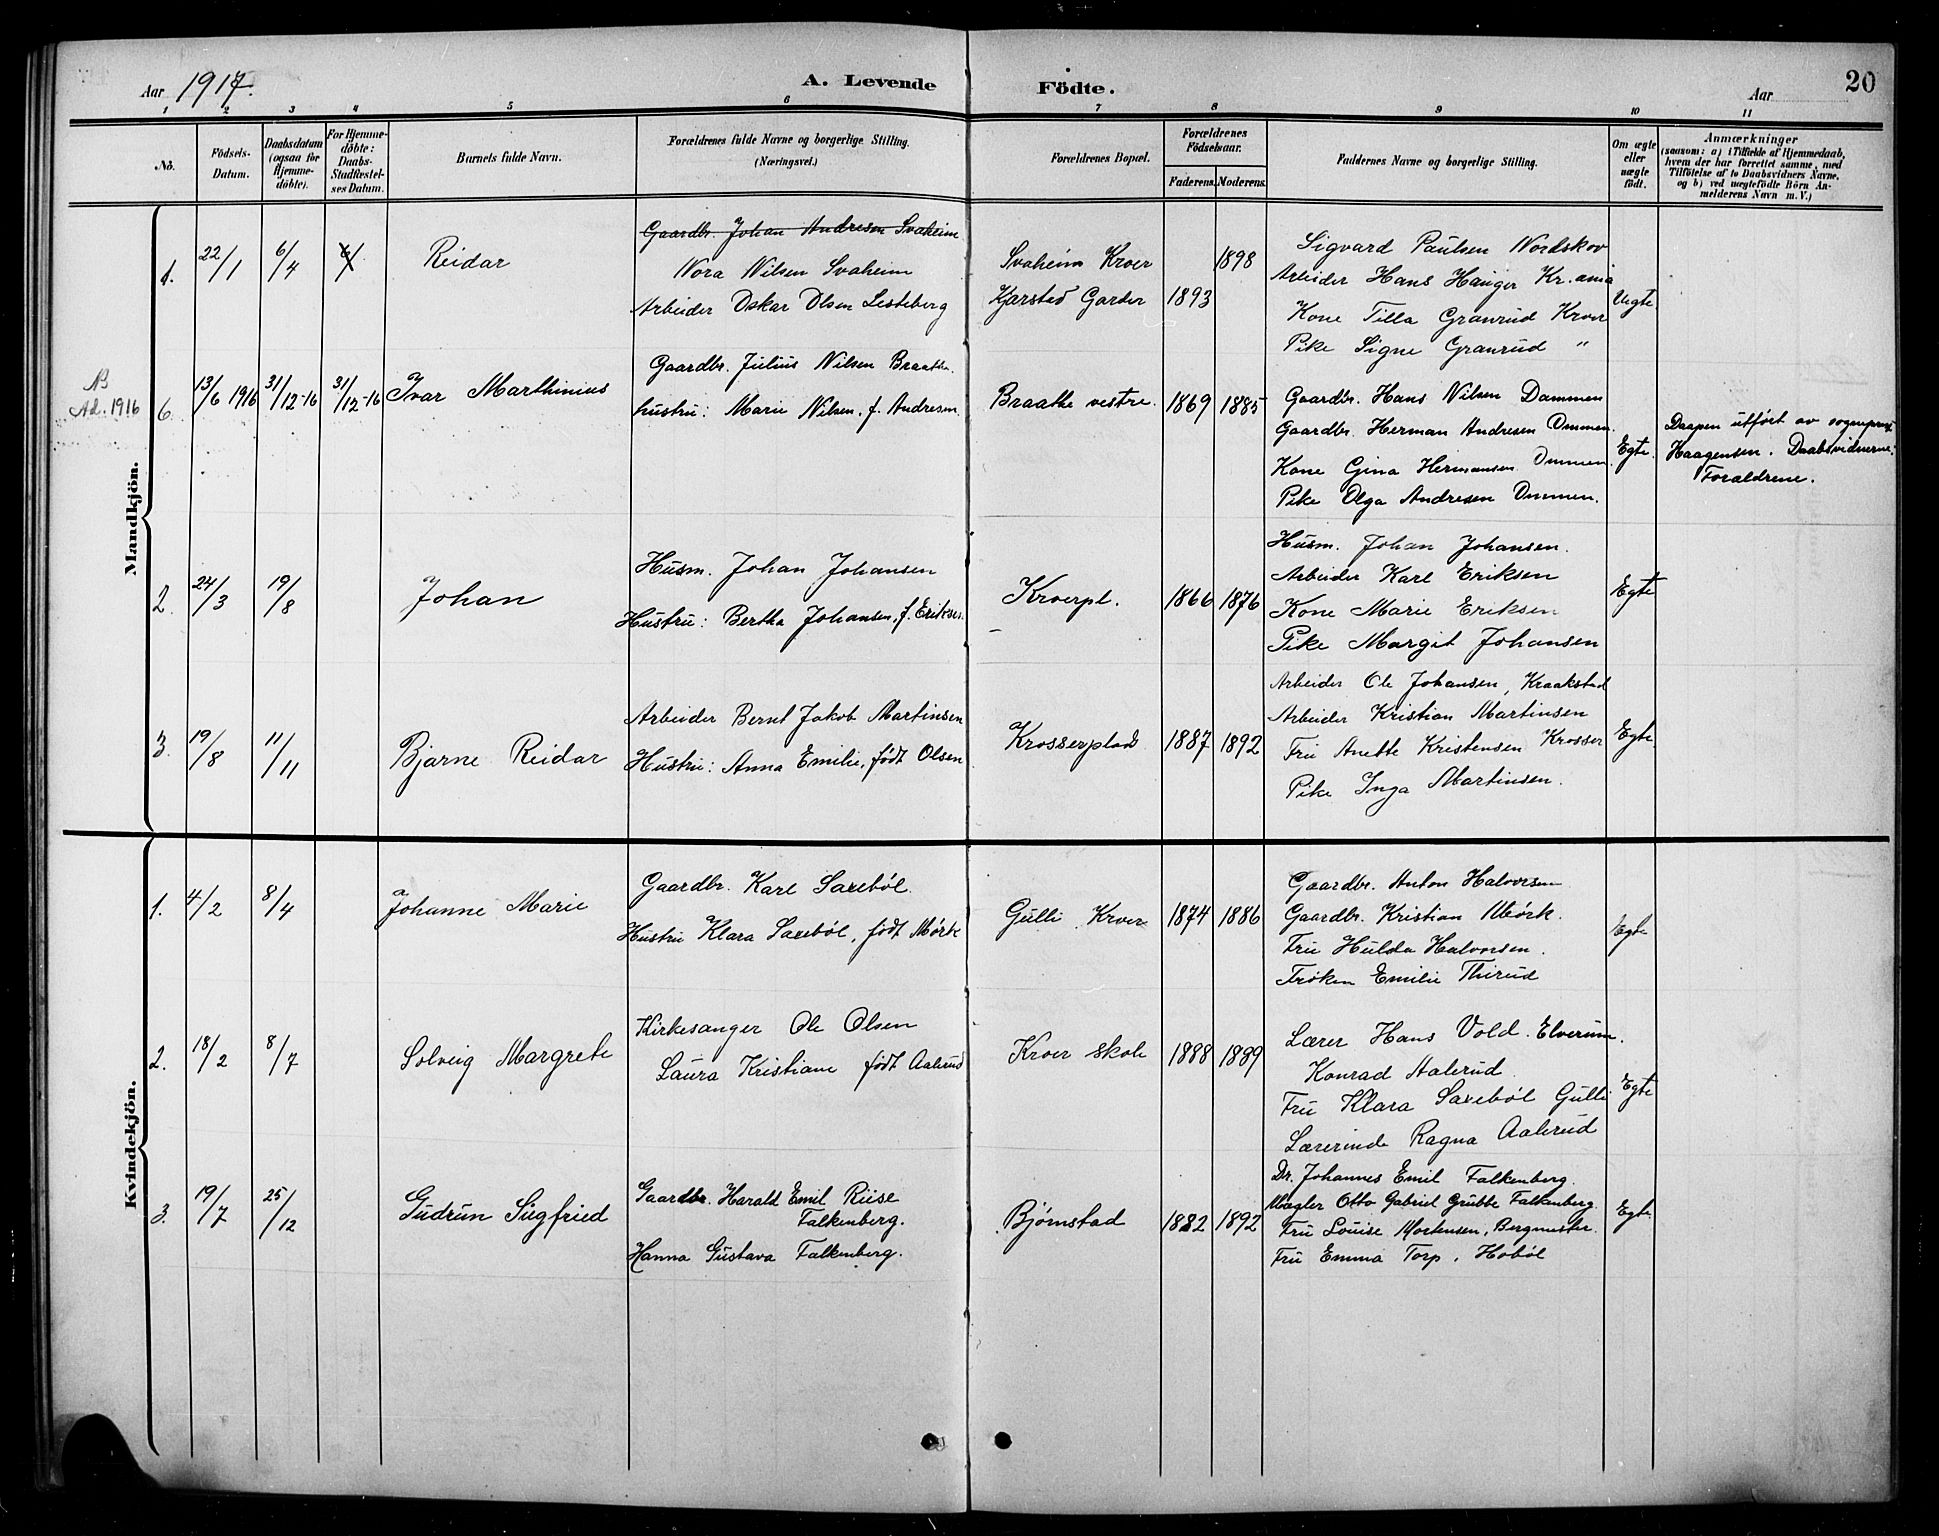 Aar 1917.
A. Levende Födte.
Aar
20
1 2 3 4 5 6 7 8 9 10 11
No.
Födsels-Datum.
Daabsdatum (ogsaa for Hjemmedöbte).
For Hjemmedöbte: Daabs-Stadfæstelses Datum.
Barnets fulde Navn.
Forældrenes fulde Navne og borgerlige Stilling.
(Næringsvei.)
Forældrenes Bopæl.
Forældrenes Födselsaar.
Faderens. Moderens.
Faddernes Navne og borgerlige Stilling.
Om ægte eller uægte födt.
Anmærkninger
(saasom: a) i Tilfælde af Hjemmedaab, hvem der har forrettet samme, med Tilföielse af to Daabsvidners Navne, og b) ved uægtefödte Börn Anmelderens Navn m. V.)
Mandkjön.
1. 22/1 6/4 6/ Reidar
Gaardbr. Johan Andresen Svaheim
Nora Nilsen Svaheim
Arbeider Oskar Olsen Lesteberg
Svaheim Kroer 1898
Kjærstad Garder 1893
Sigvard Paulsen Nordskov
Arbeider Hans Hauger Kr.ania
Kone Tilla Granrud Kroer
Pike Signe Granrud "
Uegte.
NB
Ad. 1916
6. 13/6 1916 31/12-16 31/12-16 Ivar Marthinius
Gaardbr. Julius Nilsen Braathe.
hustru: Marie Nilsen, f. Andresen
Braathe vestre. 1869 1885
Gaardbr. Hans Nilsen Dammen
Gaardbr. Herman Andresen Ommen.
Kone Gina Hermansen Ommen.
Pike Olga Andresen Ommen.
Egte.
Daapen utført av sogneprest
Haagensen. Daabsvidnerne:
Forældrene.
2. 24/3 19/8 Johan
Husm. Johan Johansen
Hustru: Bertha Johansen, f. Eriksen.
Kroerpl. 1866 1876
Husm. Johan Johansen.
Arbeider Karl Eriksen
Kone Marie Eriksen
Pike Margit Johansen
Egte
3. 19/8 11/11 Bjarne Reidar
Arbeider Bernt Jakob Martinsen
Hustru: Anna Emilie, født Olsen
Krosserplads 1887 1892
Arbeider Ole Johansen, Kraakstad
Arbeider Kristian Martinsen
Fru Anette Kristensen Krosser
Pike Inga Martinsen.
Egte.
Kvindekjön.
1. 4/2 8/4 Johanne Marie
Gaardbr. Karl Saxebøl.
Hustru Klara Saxebøl, født Mørk
Gulli Kroer 1874 1886
Gaardbr. Anton Halvorsen
Gaardbr. Kristian Mørk.
Fru Hulda Halvorsen.
Frøken Emilie Thirud
Egte
2. 18/2 8/7 Solveig Margrete
Kirkesanger Ole Olsen
Laura Kristiane født Aalerud
Kroer skole 1888 1889
Lærer Hans Vold. Elverum.
Konrad Aalerud.
Fru Klara Saxebøl Gulli
Lærerinde Ragna Aalerud
Egte
3. 19/7 25/12 Gudrun Sigfried
Gaardbr. Harald Emil Riise
Falkenberg.
Hanna Gustava Falkenberg.
Bjørnstad 1882 1892
Dr. Johannes Emil Falkenberg.
Mægler Otto Gabriel Grubbe Falkenberg.
Fru Louise Mortensen, Bergmester.
Fru Emma Torp, Hobøl
Egte